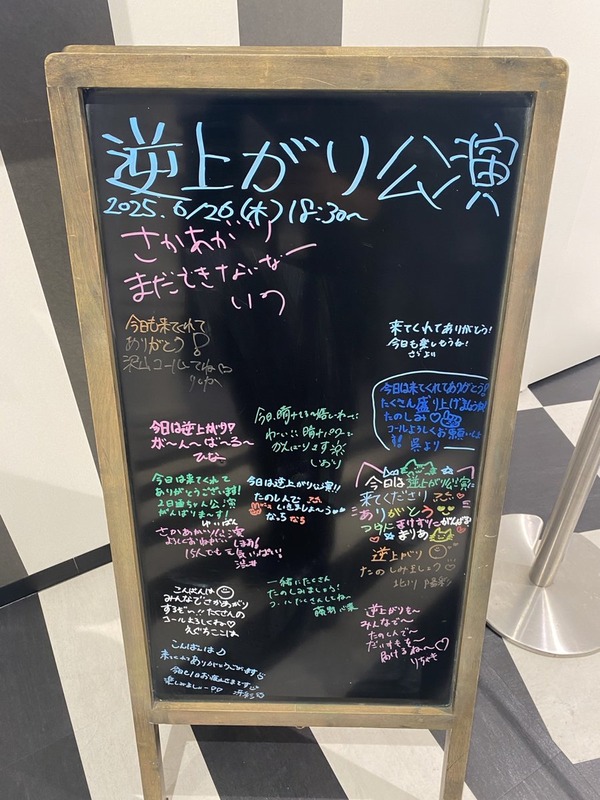 逆上がり公演
2025. 6/26(木)18:30〜
さかあがり
まだできないなー
いつ
今日も来てくれて
ありがとう!
沢山コールしてね♡
りんか
来てくれてありがとう!
今日も楽しもうね!
さらより
今日は来てくれてありがとう!
たくさん盛り上げましょうね
たのしみ♡
コールよろしくお願いします!!
呉より
今日は逆上がり
が〜ん〜ば〜る〜
ひな
今日、晴れてる〜嬉しいわー
わーい!!晴れパワーで
がんばります
しおり
今日は来てくれて
ありがとうございます!
2日連ちゃん公演
がんばりまーす!
ゆいぱん
今日は逆上がり公演!!
たのしんで
いきましょ〜う
なっち
今日は逆上がり公演に
来てくださり
ありがとう
つぎに
がんばる
まりあ
さかあがり公演
よろしくおねがいします!
15人でも元気いっぱい!
逆上がり
たのしみましょう♡
北川 陽彩
一緒にたくさん
たのしみましょう!
コールたくさんしてね〜
心菜
こんばんは
みんなでさかあがり
するぞー!!たくさんの
コールよろしくね♡
えぐちここは
逆上がりを〜
みんなで〜
たのしんで〜
だいすきを〜
届けるね〜♡
りちゃむ
こんばんは♪
来てくれてありがとうございます
今日1日お疲れさまです
楽しみましょー